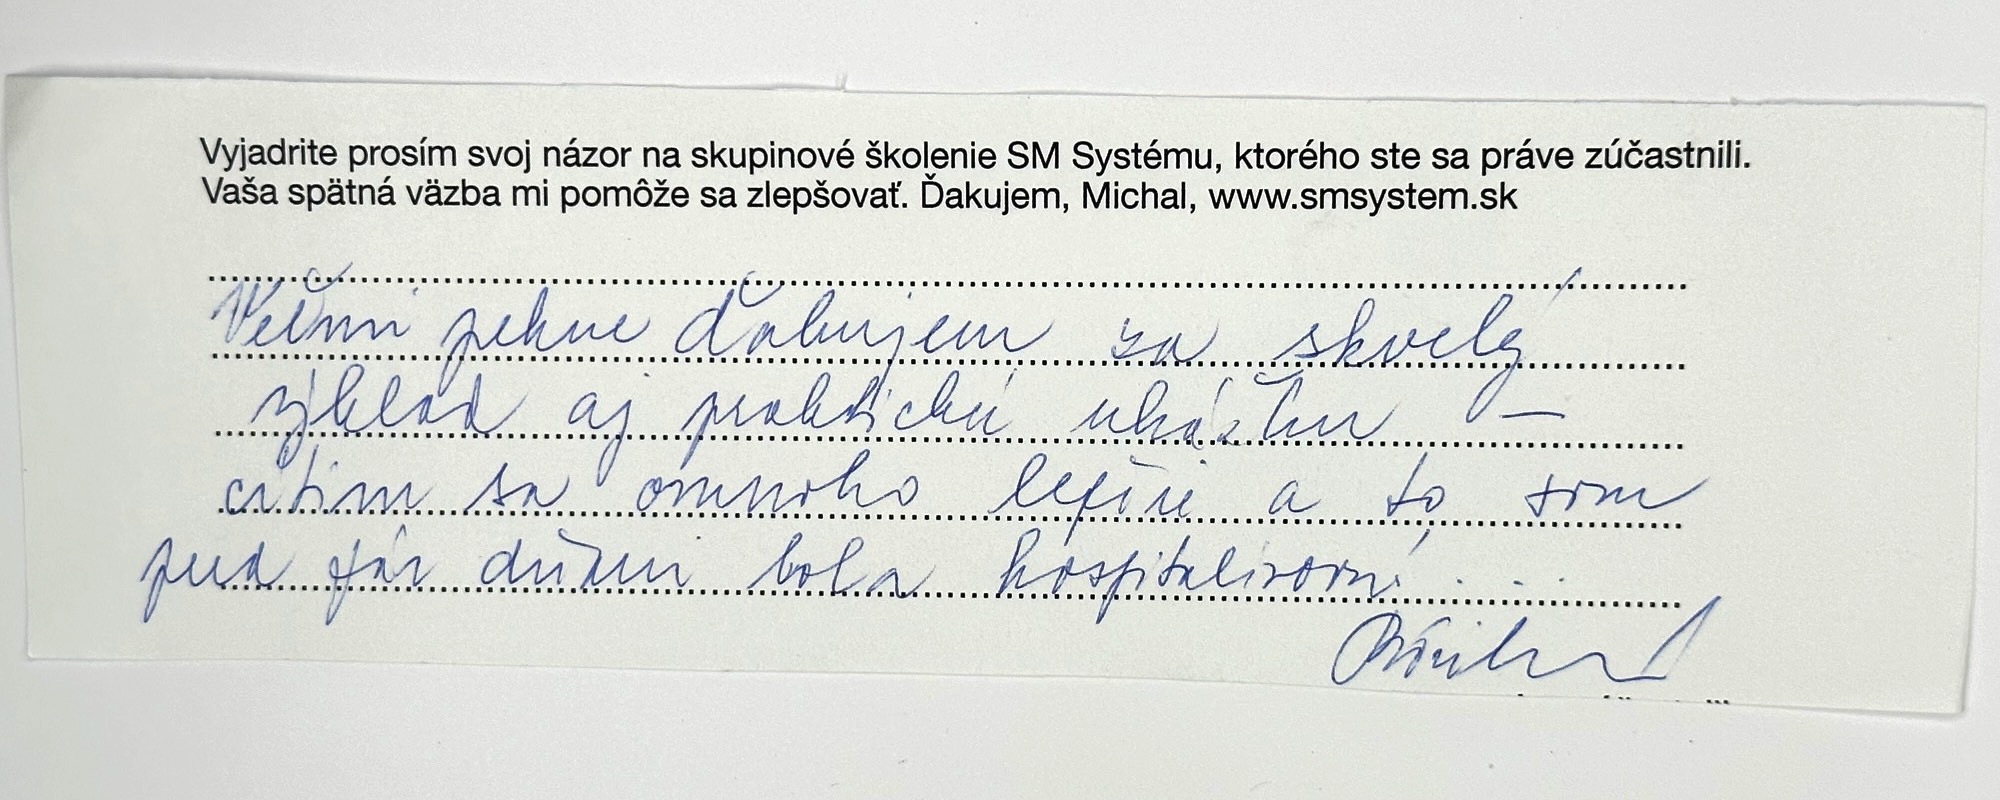 Vyjadrite prosím svoj názor na skupinové školenie SM Systému, ktorého ste sa práve zúčastnili.
Vaša spätná väzba mi pomôže sa zlepšovať. Ďakujem, Michal, www.smsystem.sk
Veľmi pekne ďakujem za skvelý
výklad aj praktickú ukážku –
cítim sa omnoho lepšie a to som
pred pár dňami bola hospitalizovaná...